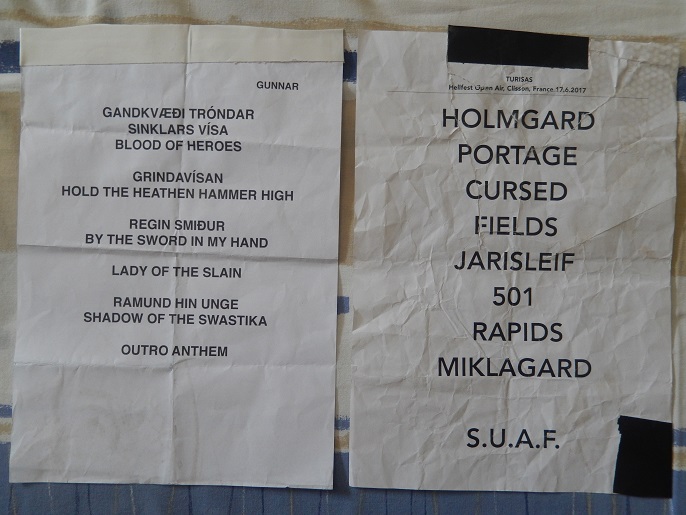 GUNNAR
GANDKVÆÐI TRÓNDAR
SINKLARS VÍSA
BLOOD OF HEROES
GRINDAVÍSAN
HOLD THE HEATHEN HAMMER HIGH
REGIN SMIÐUR
BY THE SWORD IN MY HAND
LADY OF THE SLAIN
RAMUND HIN UNGE
SHADOW OF THE SWASTIKA
OUTRO ANTHEM
TURISAS
Hellfest Open Air, Clisson, France 17.6.2017
HOLMGARD
PORTAGE
CURSED
FIELDS
JARISLEIF
501
RAPIDS
MIKLAGARD
S.U.A.F.